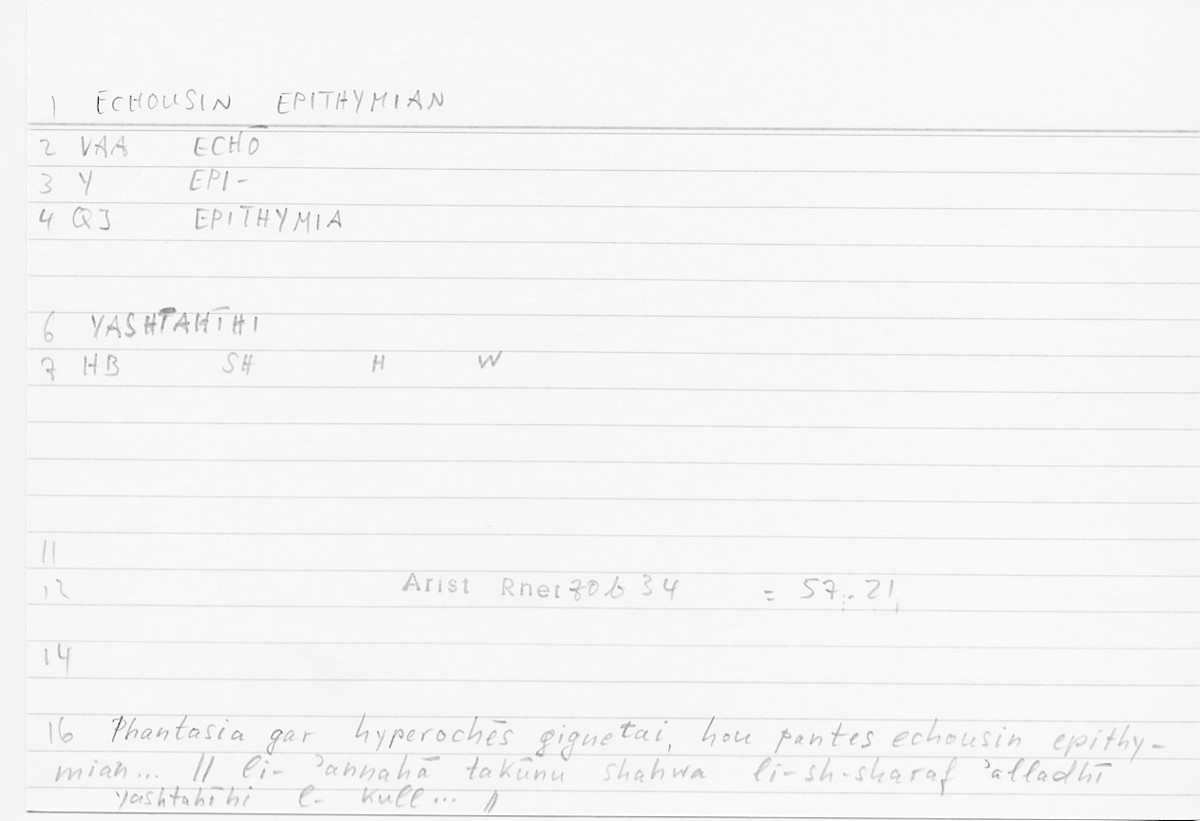 1 ECHOUSIN EPITHYMIAN
2 VAA ECHŌ
3 Y EPI-
4 QJ EPITHYMIA
6 YASHTAHĪHI
7 HB SH H W
11
12 Arist Rhet 70b 34 = 57.21
14
16 Phantasia gar hyperochēs gignetai, hou pantes echousin epithy-
mian... // li- ʾannahā takūnu shahwa li-sh-sharaf ʾalladhī
yashtahīhi l- kull... //